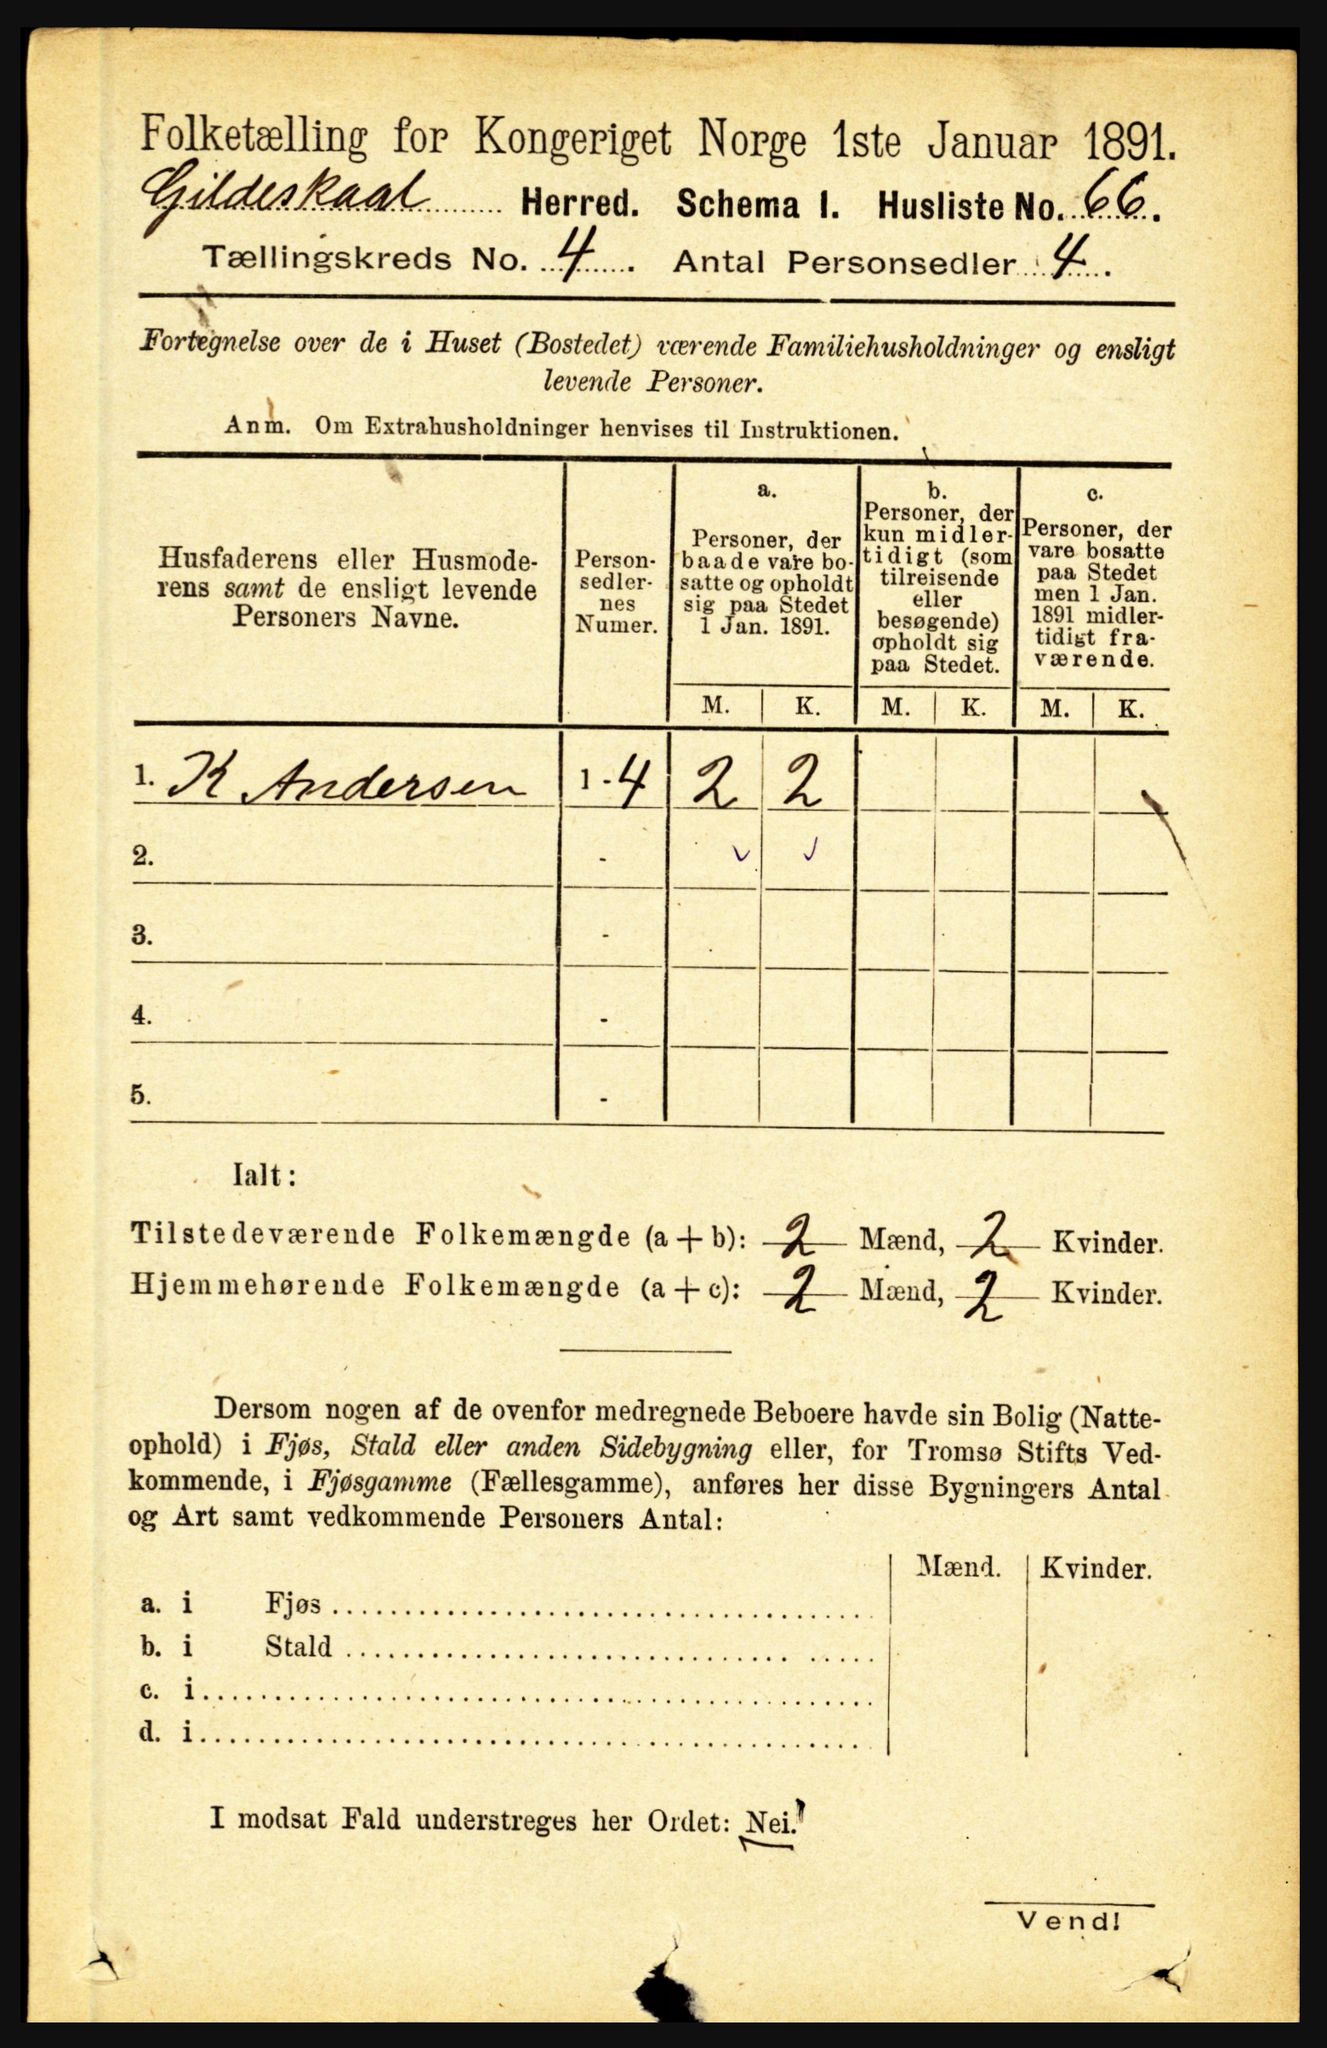 Folketælling for Kongeriget Norge 1ste Januar 1891.
Gildeskaal Herred. Schema I. Husliste No. 66.
Tællingskreds No. 4. Antal Personsedler 4.
Fortegnelse over de i Huset (Bostedet) værende Familiehusholdninger og ensligt
levende Personer.
Anm. Om Extrahusholdninger henvises til Instruktionen.
Husfaderens eller Husmode-
rens samt de ensligt levende
Personers Navne.
Person-
sedler-
nes
Numer.
a.
Personer, der
baade vare bo-
satte og opholdt
sig paa Stedet
1 Jan. 1891.
b.
Personer, der
kun midler-
tidigt (som
tilreisende
eller
besøgende)
opholdt sig
paa Stedet.
c.
Personer, der
vare bosatte
paa Stedet
men 1 Jan.
1891 midler-
tidigt fra-
værende.
M. K. M. K. M. K.
1. K Andersen 1 - 4 2 2
2. -
3. -
4. -
5. -
Ialt:
Tilstedeværende Folkemængde (a + b): 2 Mænd, 2 Kvinder.
Hjemmehørende Folkemængde (a + c): 2 Mænd, 2 Kvinder.
Dersom nogen af de ovenfor medregnede Beboere havde sin Bolig (Natte-
ophold) i Fjøs, Stald eller anden Sidebygning eller, for Tromsø Stifts Ved-
kommende, i Fjøsgamme (Fællesgamme), anføres her disse Bygningers Antal
og Art samt vedkommende Personers Antal:
Mænd. Kvinder.
a. i Fjøs
b. i Stald
c. i
d. i
I modsat Fald understreges her Ordet: Nei.
Vend!